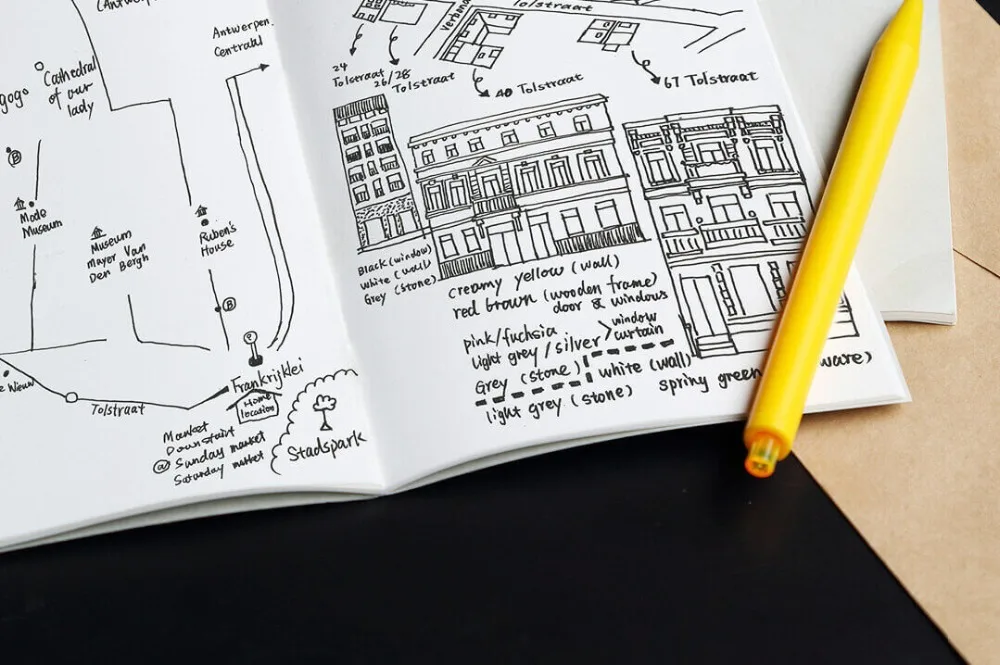 (Antwerp
Cathedral
of our
lady
gogo
B
Mode
Museum
Museum
mayer Van
Den Bergh
Ruben's
House
B
Antwerpen
Centraal
Frankrijklei
Home
location
Tolstraat
Market
@ Sunday market
Saturday market
Stadspark
Tolstraat
24
Tolstraat
26/28
Tolstraat
40 Tolstraat
67 Tolstraat
Black (window)
White (wall)
Grey (stone)
creamy yellow (wall)
red brown (wooden frame)
door & windows
pink/fuchsia
light grey / silver > window
curtain
Grey (stone)
white (wall)
light grey (stone)
spriny green
ware)